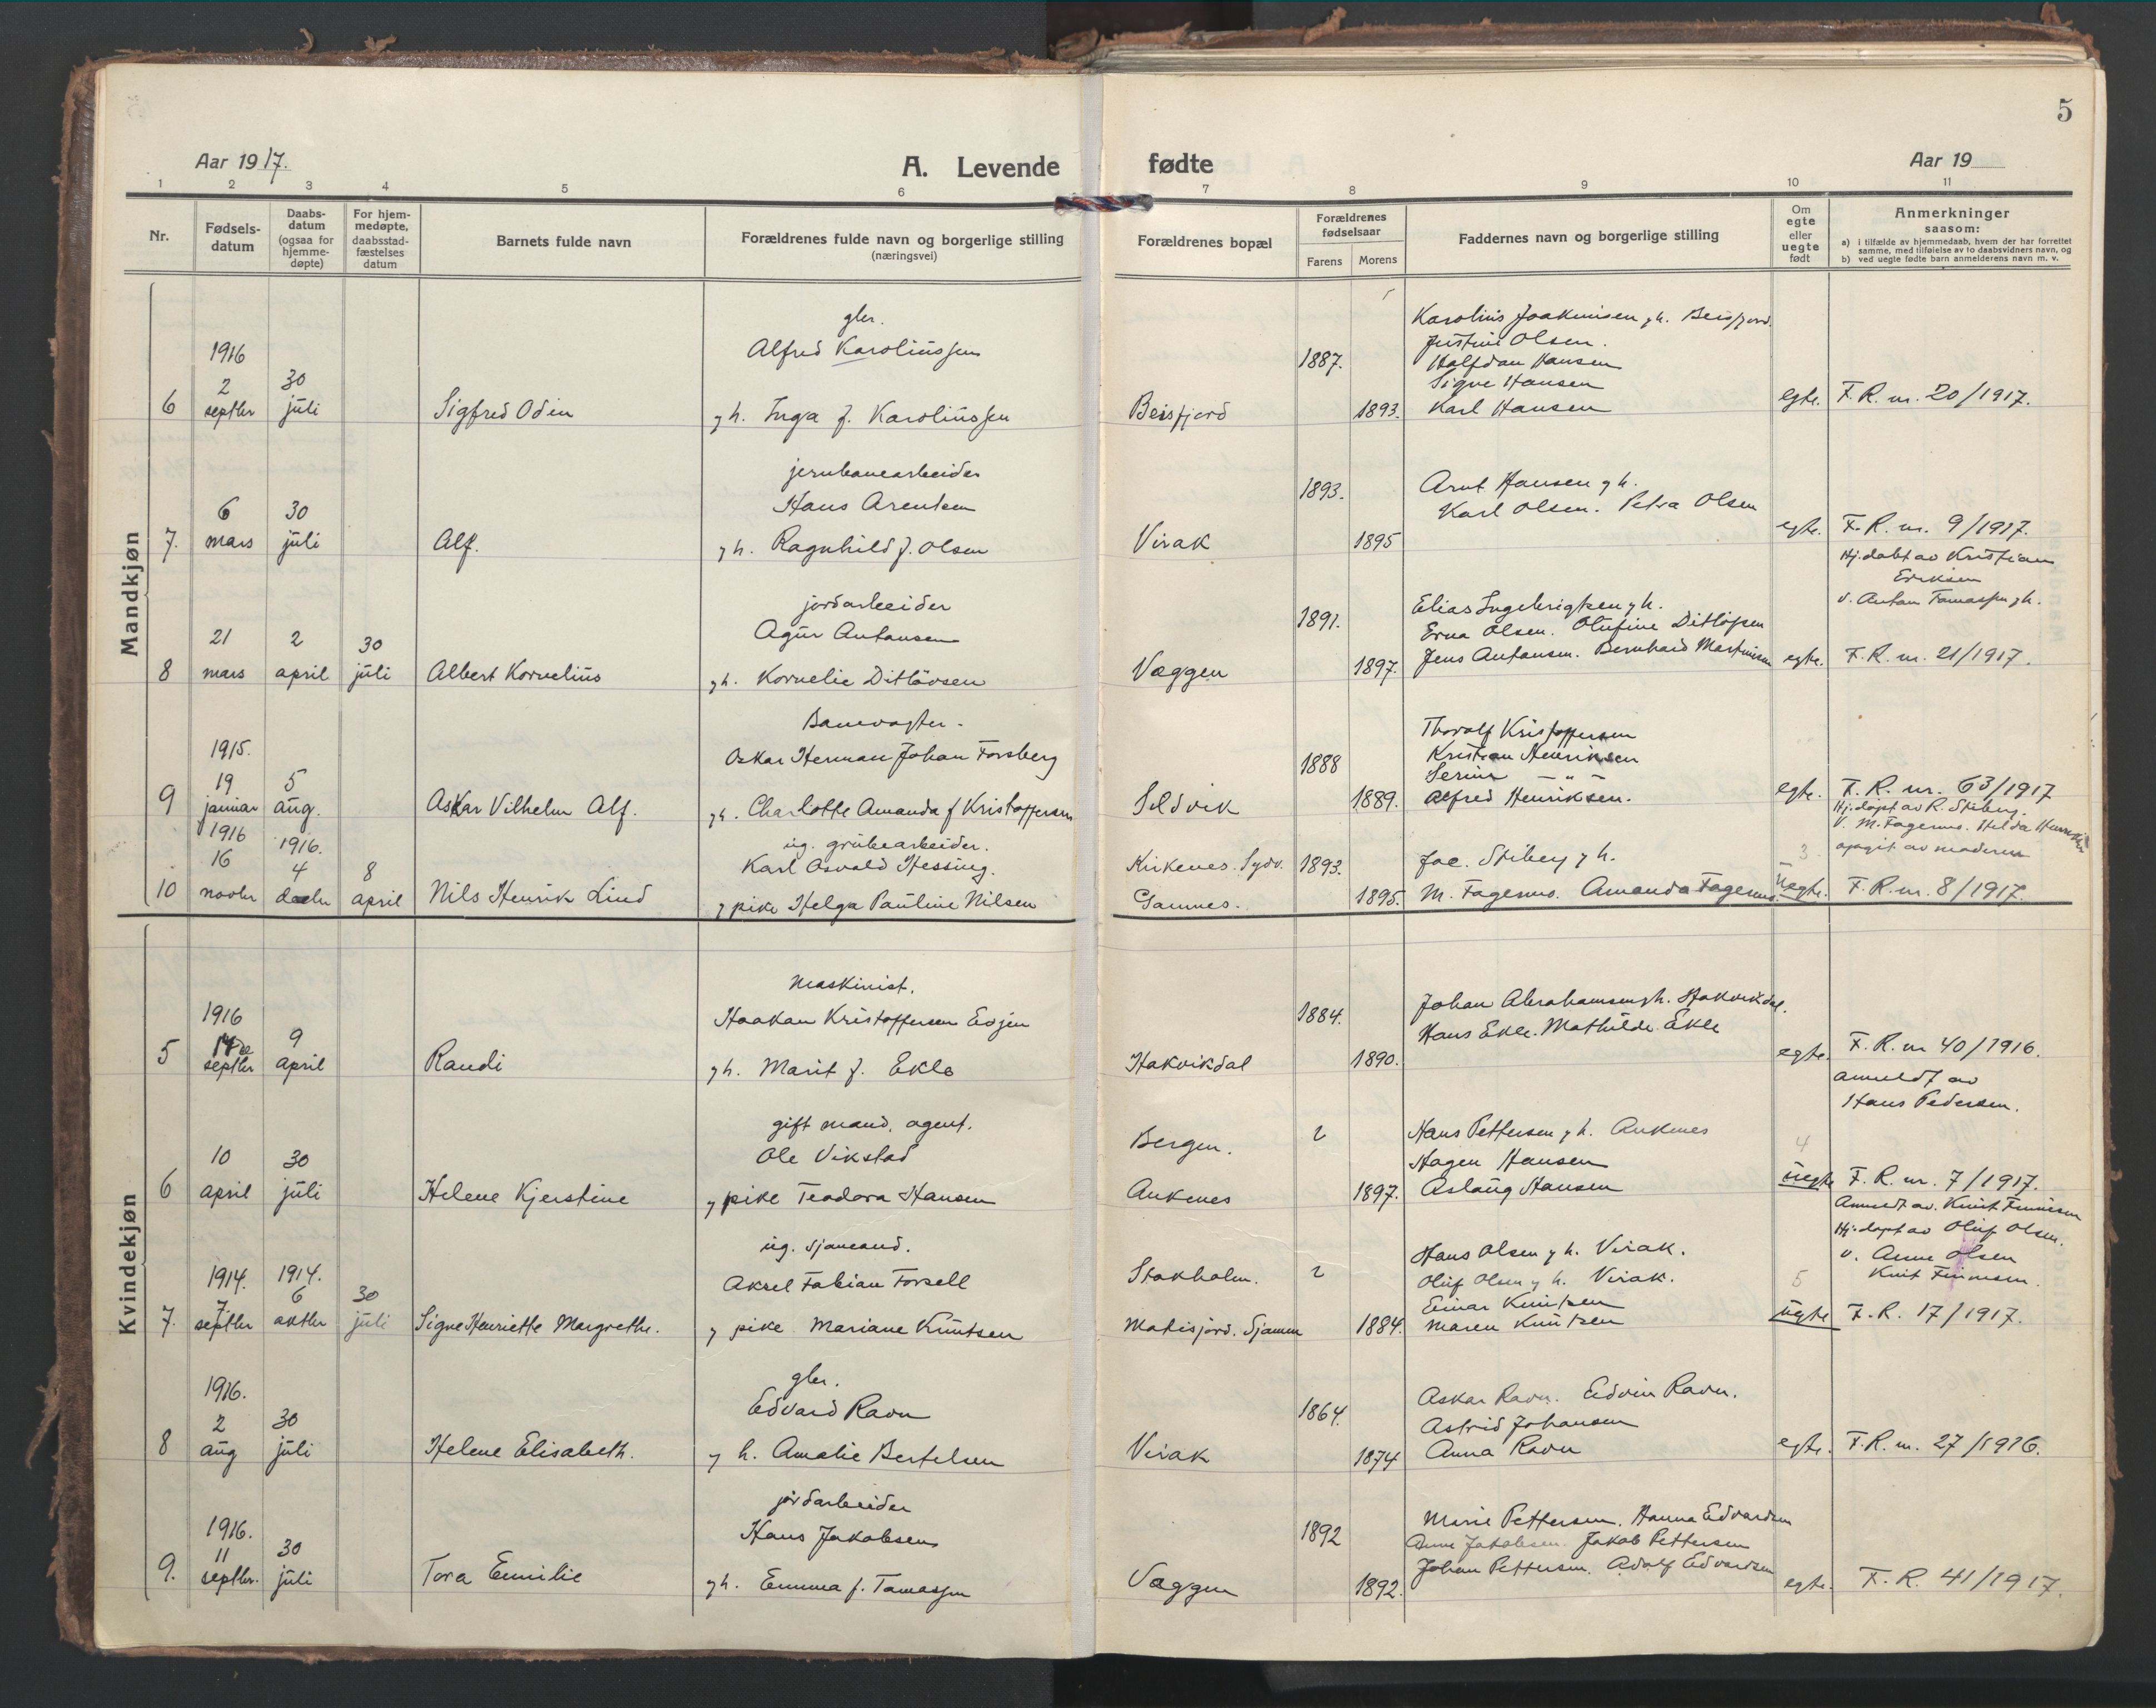 5
Aar 1917.
A. Levende fødte
Aar 19
1 2 3 4 5 6 7 8 9 10 11
Nr.
Fødsels-
datum
Daabs-
datum
(ogsaa for
hjemme-
døpte)
For hjem-
medøpte,
daabsstad-
fæstelses
datum
Barnets fulde navn
Forældrenes fulde navn og borgerlige stilling
(næringsvei)
Forældrenes bopæl
Forældrenes
fødselsaar
Farens
Morens
Faddernes navn og borgerlige stilling
Om
egte
eller
uegte
født
Anmerkninger
saasom:
a) i tilfælde av hjemmedaab, hvem der har forrettet
samme, med tilføielse av to daabsvidners navn, og
b) ved uegte fødte barn anmelderens navn m. v.
Mandkjøn
1916
2 septbr
30 juli
6
Sigfred Odin
gbr.
Alfred Karoliussen
g h. Inga f. Karoliussen
Beisfjord
1887.
1893.
Karolius Joakimsen g h. Beisfjord.
Justine Olsen.
Halfdan Hansen
Signe Hansen
Karl Hansen
egte.
F. R. nr. 20/1917.
7.
6 mars
30 juli
Alf.
jernbanearbeider
Hans Arentsen
g h. Ragnhild f. Olsen
Virak
1893.
1895
Arnt Hansen g h.
Karl Olsen. Petra Olsen
egte.
F. R. nr. 9/1917.
8
21 mars
2 april
30 juli
Albert Kornelius
jordarbeider
Agur Antonsen
g h. Kornelie Ditløvsen
Vaggen
1891.
1897.
Elias Ingebrigtsen g h.
Erna Olsen. Olufine Ditløfsen
Jens Antonsen. Bernhard Martinsen
egte.
Hj. døbt av Kristian
Eriksen
v. Anton Tomassen g h.
F. R. nr. 21/1917.
9
1915.
19 januar
5 aug.
Askar Vilhelm Alf.
Banevogter.
Oskar Herman Johan Forsberg
g h. Charlotte Amanda f Kristoffersen
Sildvik
1888
1889.
Thoralf Kristoffersen
Kristian Henriksen
Serine — " —
Alfred Henriksen.
egte.
F. R. nr. 63/1917
10
1916
16 novbr
1916.
4 decbr
8 april
Nils Henrik Lind
ug. grubearbeider.
Karl Osvald Hessing.
g pike Helga Pauline Nilsen
Kirkenes. Sydv.
1893.
1895.
Joe. Stiberg g h.
M. Fagernes. Amanda Fagernes.
3
uegte.
Hj. døpt av R. Stiberg.
V. M. Fagernes. Helda Henriksen
opgit av moderen
F. R. nr. 8/1917.
Kvindekjøn
5
1916
septbr
9 april
Randi
Maskinist.
Haakon Kristoffersen Evjen
g h. Marit f. Ekle
Hakvikdal
1884.
1890.
Johan Abrahamsen g h. Hakvikdal.
Hans Ekle. Mathilde Ekle
egte.
F. R. nr 40/1916.
6
10 april
30 juli
Helene Kjerstine
gift mand, agent.
Ole Vikstad
g pike Teodora Hansen
Bergen.
Ankenes
?
1897.
Hans Pettersen g h. Ankenes
Hagen Hansen
Aslaug Hansen
4
uegte
anmeldt av
Hans Pedersen.
F. R. nr. 7/1917.
7.
1914.
7 septbr
1914.
6 oktbr
30 juli
Signe Henriette Margrethe.
ug. sjømand.
Aksel Fabian Forsell
g pike Mariane Knutsen
Stokholm.
?
1884.
Hans Olsen g h. Virak.
Oluf Olsen g h. Virak.
Einar Knutsen
Maren Knutsen
5
uegte
Anmeldt av. Knut Finnesen
Hj. døpt av Oluf Olsen.
v. Anne Olsen
Knut Finnesen.
F. R. 17/1917.
8
1916.
2 aug
30 juli
Helene Elisabeth.
gbr.
Edvard Ravn
g h. Amalie Bertelsen
Virak
1864.
1874
Askar Ravn. Edvin Ravn.
Astrid Johansen
Anna Ravn
egte.
F. R. nr. 27/1916.
9.
1916.
11 septbr.
30 juli
Tora Emilie
jordarbeider
Hans Jakobsen
g h. Emma f. Tomassen
Vaggen
1892
1892.
Marie Pettersen. Hanna Edvardsen
Anne Jakobsen. Jakob Pettersen
Johan Pettersen. Adolf Edvardsen
egte.
F. R. 41/1917.